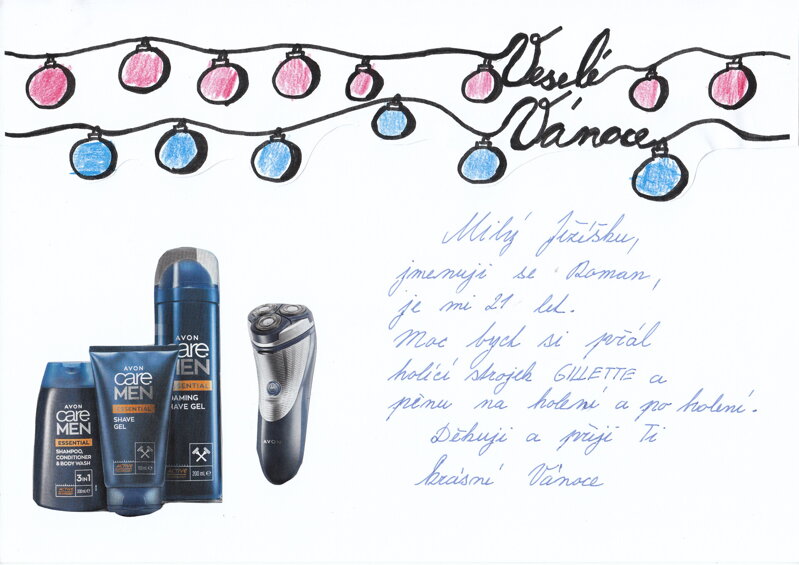 Veselé
Vánoce
Milý Ježíšku,
jmenuji se Roman,
je mi 21 let.
Moc bych si přál
holící strojek GILLETTE a
pěnu na holení a po holení.
Děkuji a přeji Ti
krásné Vánoce
AVON
care
MEN
ESSENTIAL
SHAMPOO,
CONDITIONER
& BODY WASH
3 IN 1
200 ml ℮
AVON
care
MEN
ESSENTIAL
SHAVE
GEL
AVON
care
MEN
ESSENTIAL
FOAMING
SHAVE GEL
200 ml ℮
AVON